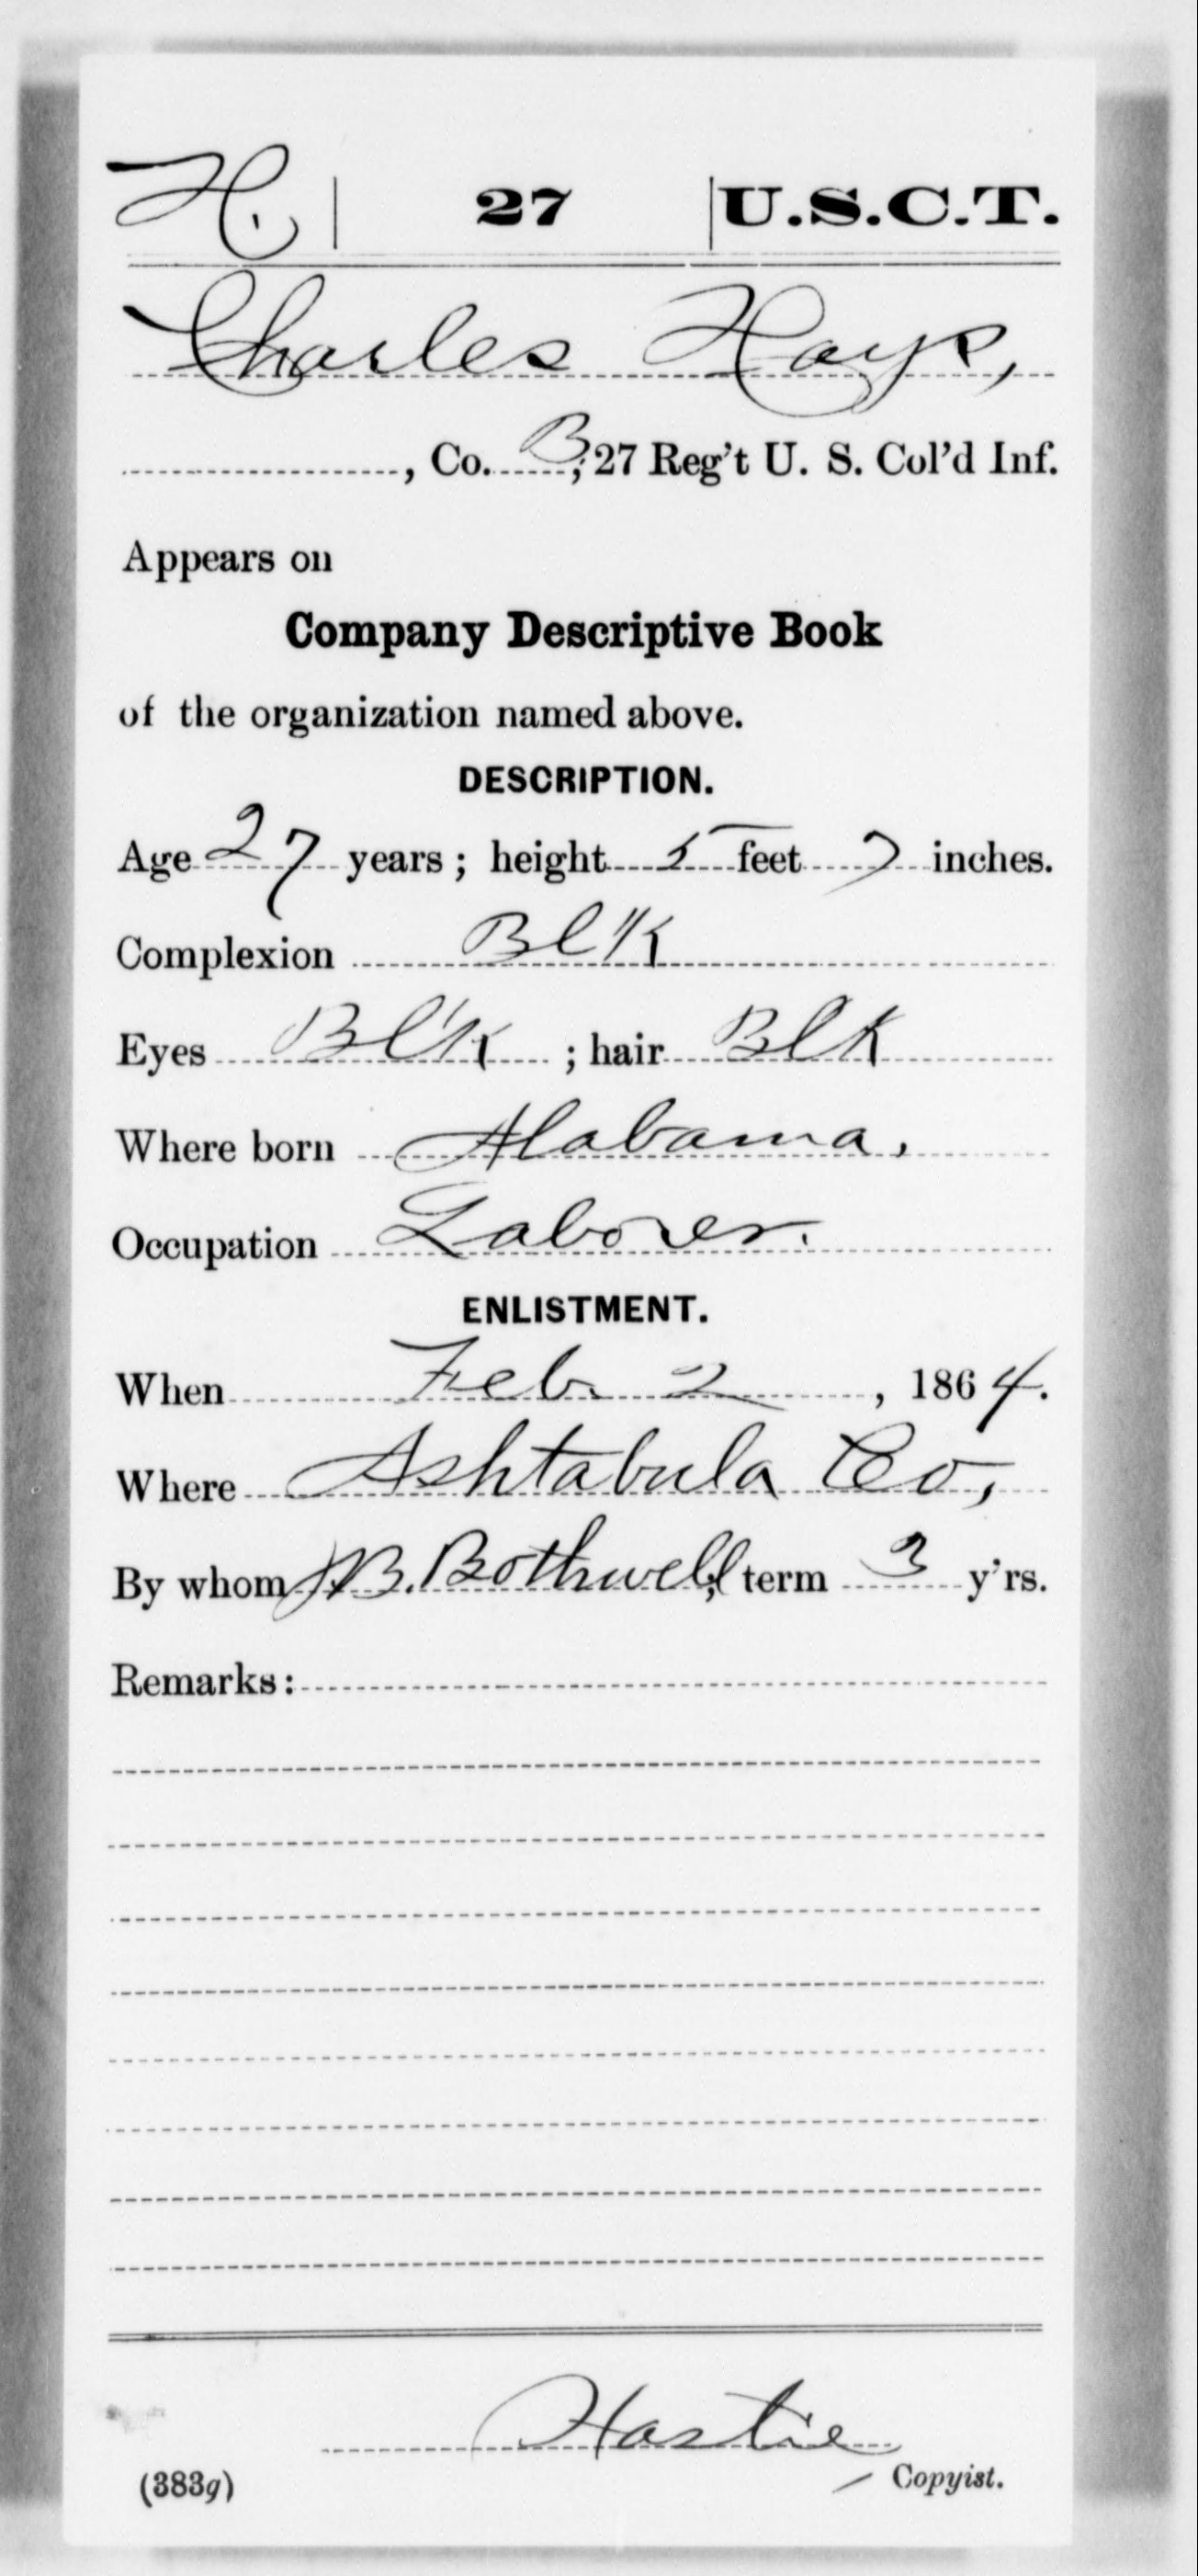 H. | 27 | U.S.C.T.
Charles Hays,
, Co. B, 27 Reg't U. S. Col'd Inf.
Appears on
Company Descriptive Book
of the organization named above.
DESCRIPTION.
Age 27 years; height 5 feet 7 inches.
Complexion Blk
Eyes Bl'k; hair Blk
Where born Alabama.
Occupation Laborer.
ENLISTMENT.
When Feb. 2, 1864.
Where Ashtabula Co,
By whom B. Bothwell; term 3 y'rs.
Remarks:
Hastie
Copyist.
(383g)